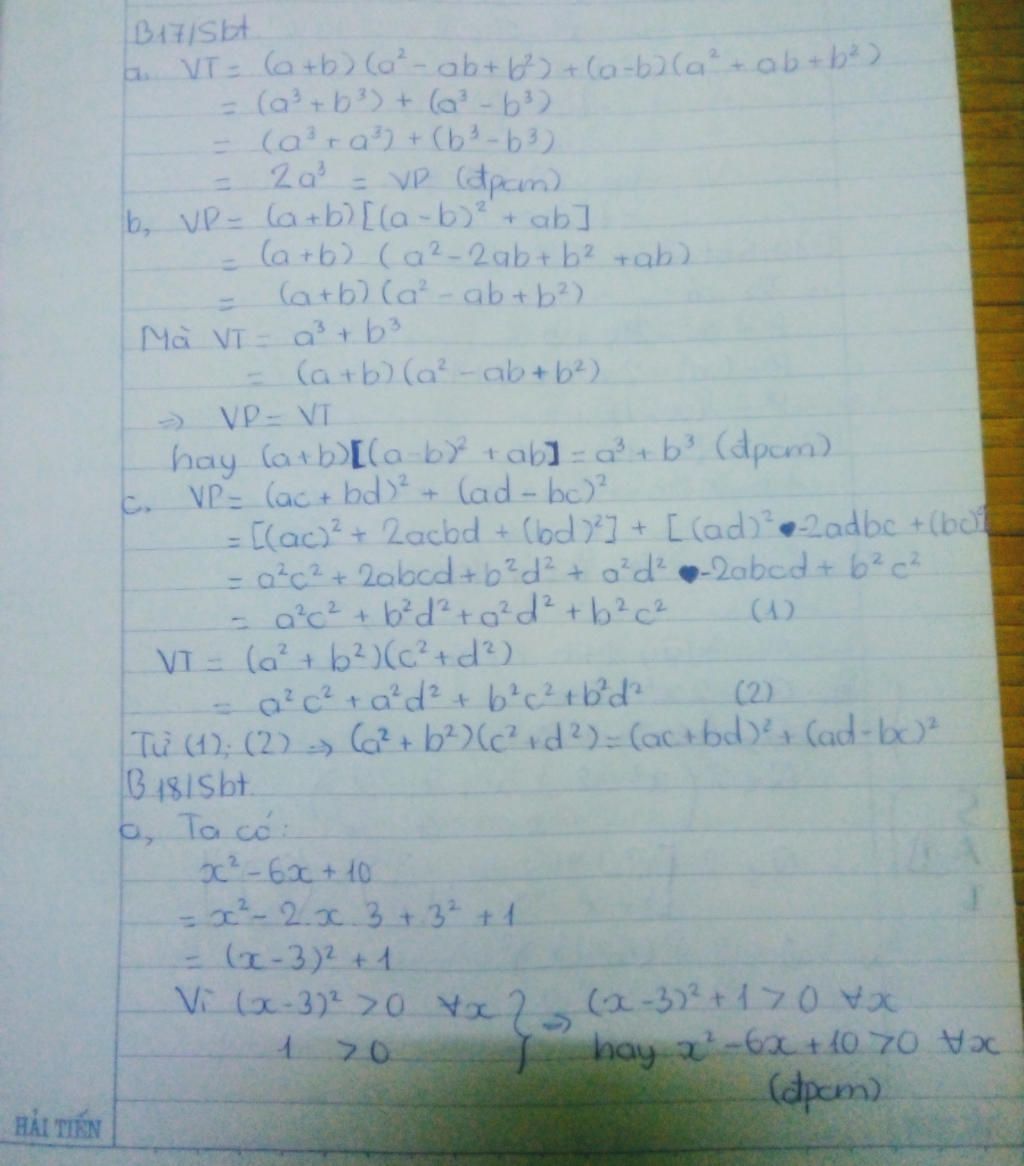 B17/Sbt
a. VT = (a+b)(a² - ab + b²) + (a-b)(a² + ab + b²)
= (a³ + b³) + (a³ - b³)
= (a³ + a³) + (b³ - b³)
= 2a³ = VP (đpcm)
b, VP = (a+b)[(a-b)² + ab]
= (a+b) (a² - 2ab + b² + ab)
= (a+b)(a² - ab + b²)
Mà VT = a³ + b³
= (a+b)(a² - ab + b²)
⇒ VP = VT
hay (a+b)[(a-b)² + ab] = a³ + b³ (đpcm)
c. VP = (ac + bd)² + (ad - bc)²
= [(ac)² + 2acbd + (bd)²] + [(ad)² - 2adbc + (bc)²]
= a²c² + 2abcd + b²d² + a²d² - 2abcd + b²c²
= a²c² + b²d² + a²d² + b²c² (1)
VT = (a² + b²)(c² + d²)
= a²c² + a²d² + b²c² + b²d² (2)
Từ (1); (2) ⇒ (a² + b²)(c² + d²) = (ac + bd)² + (ad - bc)²
B18/Sbt
a, Ta có:
x² - 6x + 10
= x² - 2.x.3 + 3² + 1
= (x-3)² + 1
Vì (x-3)² > 0 ∀x } ⇒ (x-3)² + 1 > 0 ∀x
1 > 0 } hay x² - 6x + 10 > 0 ∀x
(đpcm)
HẢI TIẾN